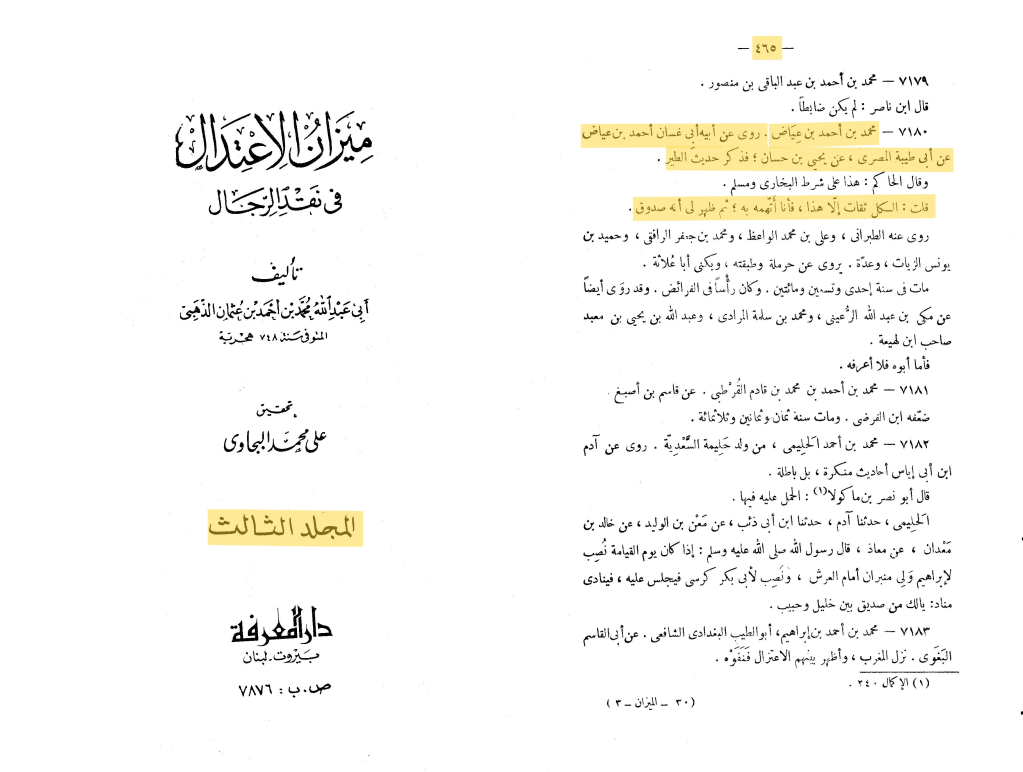 — ٤٦٥ —
٧١٧٩ — محمد بن أحمد بن عبد الباقى بن منصور .
قال ابن ناصر : لم يكن ضابطاً .
٧١٨٠ — محمد بن أحمد بن عِيَاض . روى عن أبيه أبى غسان أحمد بن عياض
عن أبى طيبة المصرى ، عن يحيى بن حسان ؛ فذكر حديث الطير .
وقال الحاكم : هذا على شرط البخارى ومسلم .
قلت : السكل ثقات إلّا هذا ، فأنا أتَّهمه به ؛ ثم ظهر لى أنه صدوق .
روى عنه الطبرانى ، وعلى بن محمد الواعظ ، ومحمد بن جعفر الرافقى ، وحميد بن
يونس الزيات ، وعدّة . يروى عن حرملة وطبقته ، ويكنى أبا عُلاثة .
مات فى سنة إحدى وتسعين ومائتين . وكان رأْساً فى الفرائض . وقد روَى أيضاً
عن مكى بن عبد الله الرُّعينى ، ومحمد بن سلمة المرادى ، وعبد الله بن يحيى بن معبد
صاحب ابن لهيعة .
فأما أبوه فلا أعرفه .
٧١٨١ — محمد بن أحمد بن محمد بن قادم القُرْطبى . عن قاسم بن أصبغ .
ضعّفه ابن الفرضى . ومات سنة ثمان وثمانين وثلاثمائة .
٧١٨٢ — محمد بن أحمد الحَلِيمى ، من ولد حَلِيمة السَّعْدِيّة . روى عن آدم
ابن أبى إياس أحاديث منكرة ، بل باطلة .
قال أبو نصر بن ماكولا(١) : الحمل عليه فيها .
الحَلِيمى ، حدثنا آدم ، حدثنا ابن أبى ذئب ، عن مَعْن بن الوليد ، عن خالد بن
مَعْدان ، عن معاذ ، قال رسول الله صلى الله عليه وسلم : إذا كان يوم القيامة نُصِب
لإبراهيم وَلِى منبران أمام العرش ، ونُصِب لأبى بكر كرسى فيجلس عليه ، فينادى
مناد: يالك من صديق بين خليل وحبيب .
٧١٨٣ — محمد بن أحمد بن إبراهيم، أبو الطيب البغدادى الشافعى . عن أبى القاسم
البَغَوى . نزل المغرب ، وأظهر بينهم الاعتزال فَنَفَوْه .
(١) الإكمال ٢٤٠ .
( ٣٠ ـ الميزان ـ ٣ )
ميزان الاعتدال
فى نقد الرجال
تأليف
أبى عبد الله محمد بن أحمد بن عثمان الذهبى
المتوفى سنة ٧٤٨ هجرية
تحقيق
على محمد البجاوى
المجلد الثالث
دار المعرفة
بيروت ـ لبنان
ص.ب : ٧٨٧٦